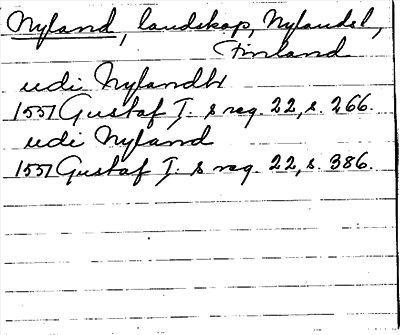 Nyland, landskap, Nylandsl,
Finland
udi Nylandh
1557 Gustaf I. s reg. 22, s. 266.
udi Nyland
1557 Gustaf I. s reg. 22, s. 386.